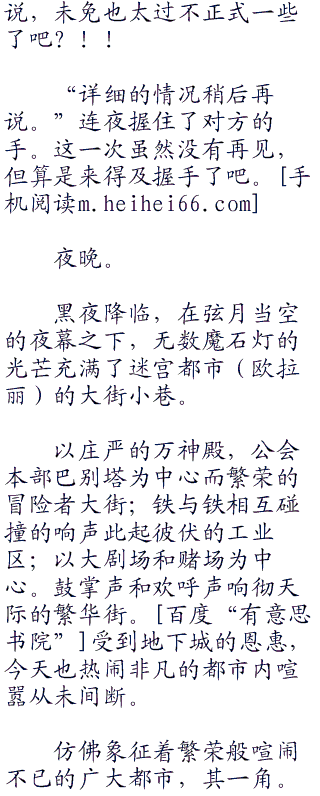 说，未免也太过不正式一些
了吧？！！
“详细的情况稍后再
说。”连夜握住了对方的
手。这一次虽然没有再见，
但算是来得及握手了吧。[手
机阅读m.heihei66.com]
夜晚。
黑夜降临，在弦月当空
的夜幕之下，无数魔石灯的
光芒充满了迷宫都市（欧拉
丽）的大街小巷。
以庄严的万神殿，公会
本部巴别塔为中心而繁荣的
冒险者大街；铁与铁相互碰
撞的响声此起彼伏的工业
区；以大剧场和赌场为中
心。鼓掌声和欢呼声响彻天
际的繁华街。[百度“有意思
书院”]受到地下城的恩惠，
今天也热闹非凡的都市内喧
嚣从未间断。
仿佛象征着繁荣般喧闹
不已的广大都市，其一角。